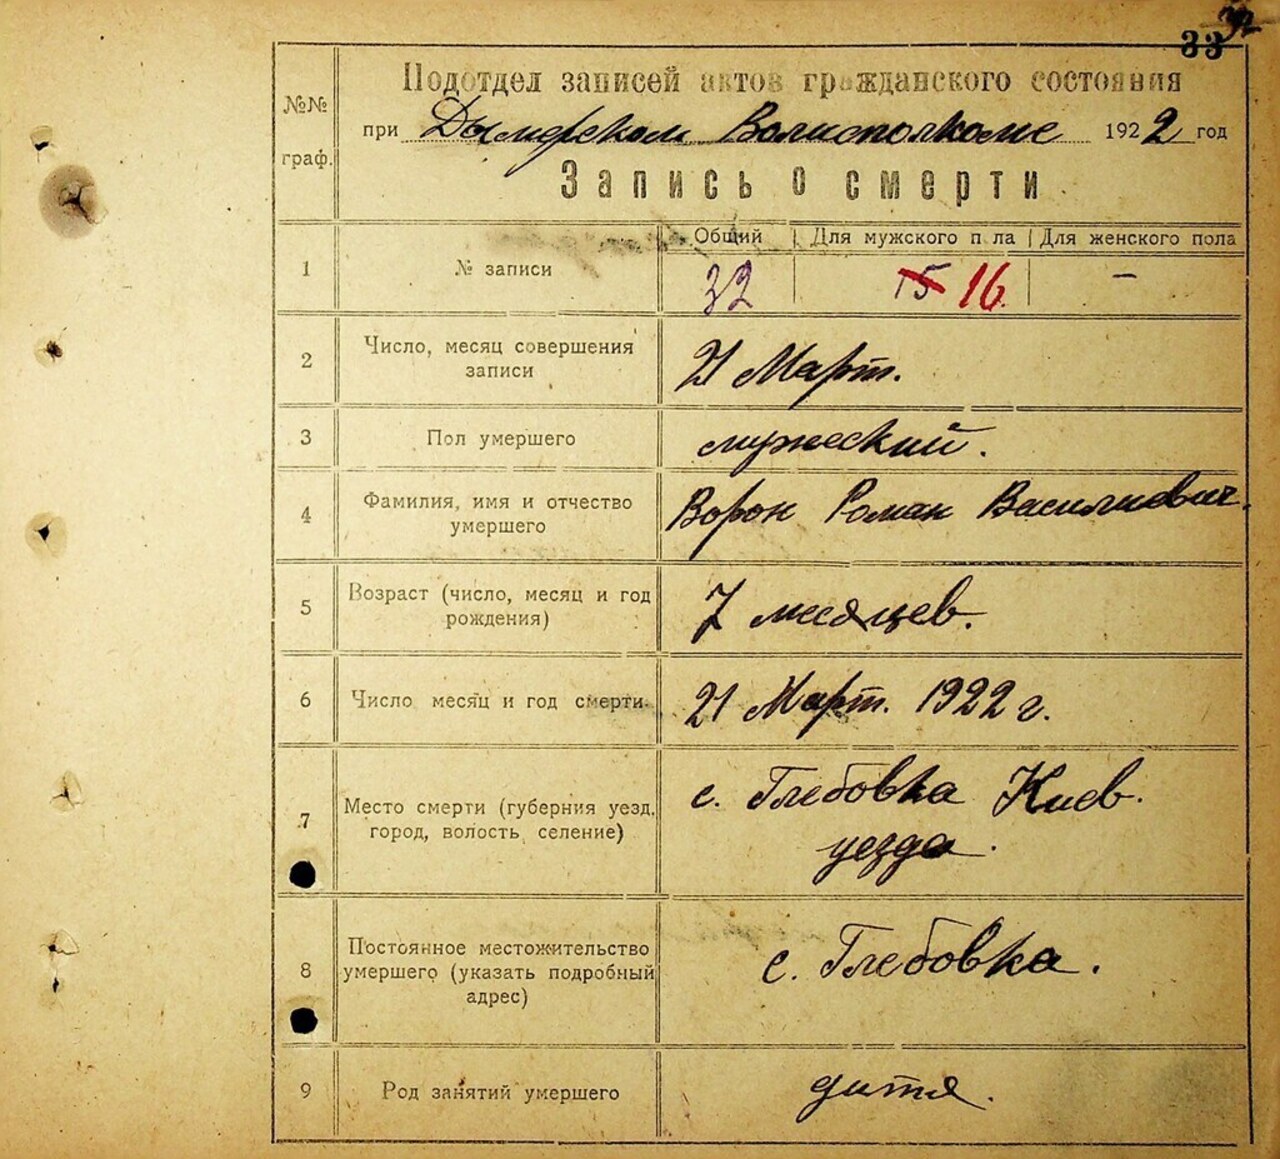 32
33
№№ граф.
Подотдел записей актов гражданского состояния
при Дымерском Волисполкоме 1922 год
Запись о смерти
Общий | Для мужского п ла | Для женского пола
1 № записи 32 15 16 –
2 Число, месяц совершения записи 21 Март.
3 Пол умершего мужеский.
4 Фамилия, имя и отчество умершего Ворон Роман Василиевич.
5 Возраст (число, месяц и год рождения) 7 месяцев.
6 Число месяц и год смерти. 21 Март. 1922 г.
7 Место смерти (губерния уезд, город, волость селение) с. Глебовка Киев.
уезда.
8 Постоянное местожительство умершего (указать подробный адрес) с. Глебовка.
9 Род занятий умершего дитя.